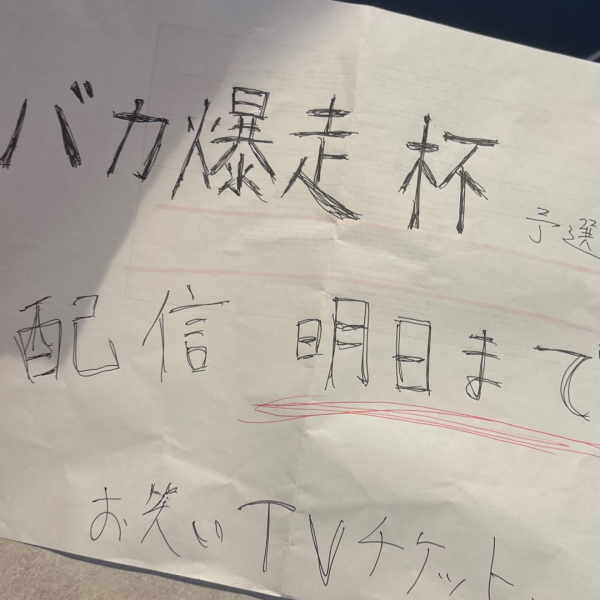 バカ爆走杯 予選
配信 明日まで
お笑いTVチケット